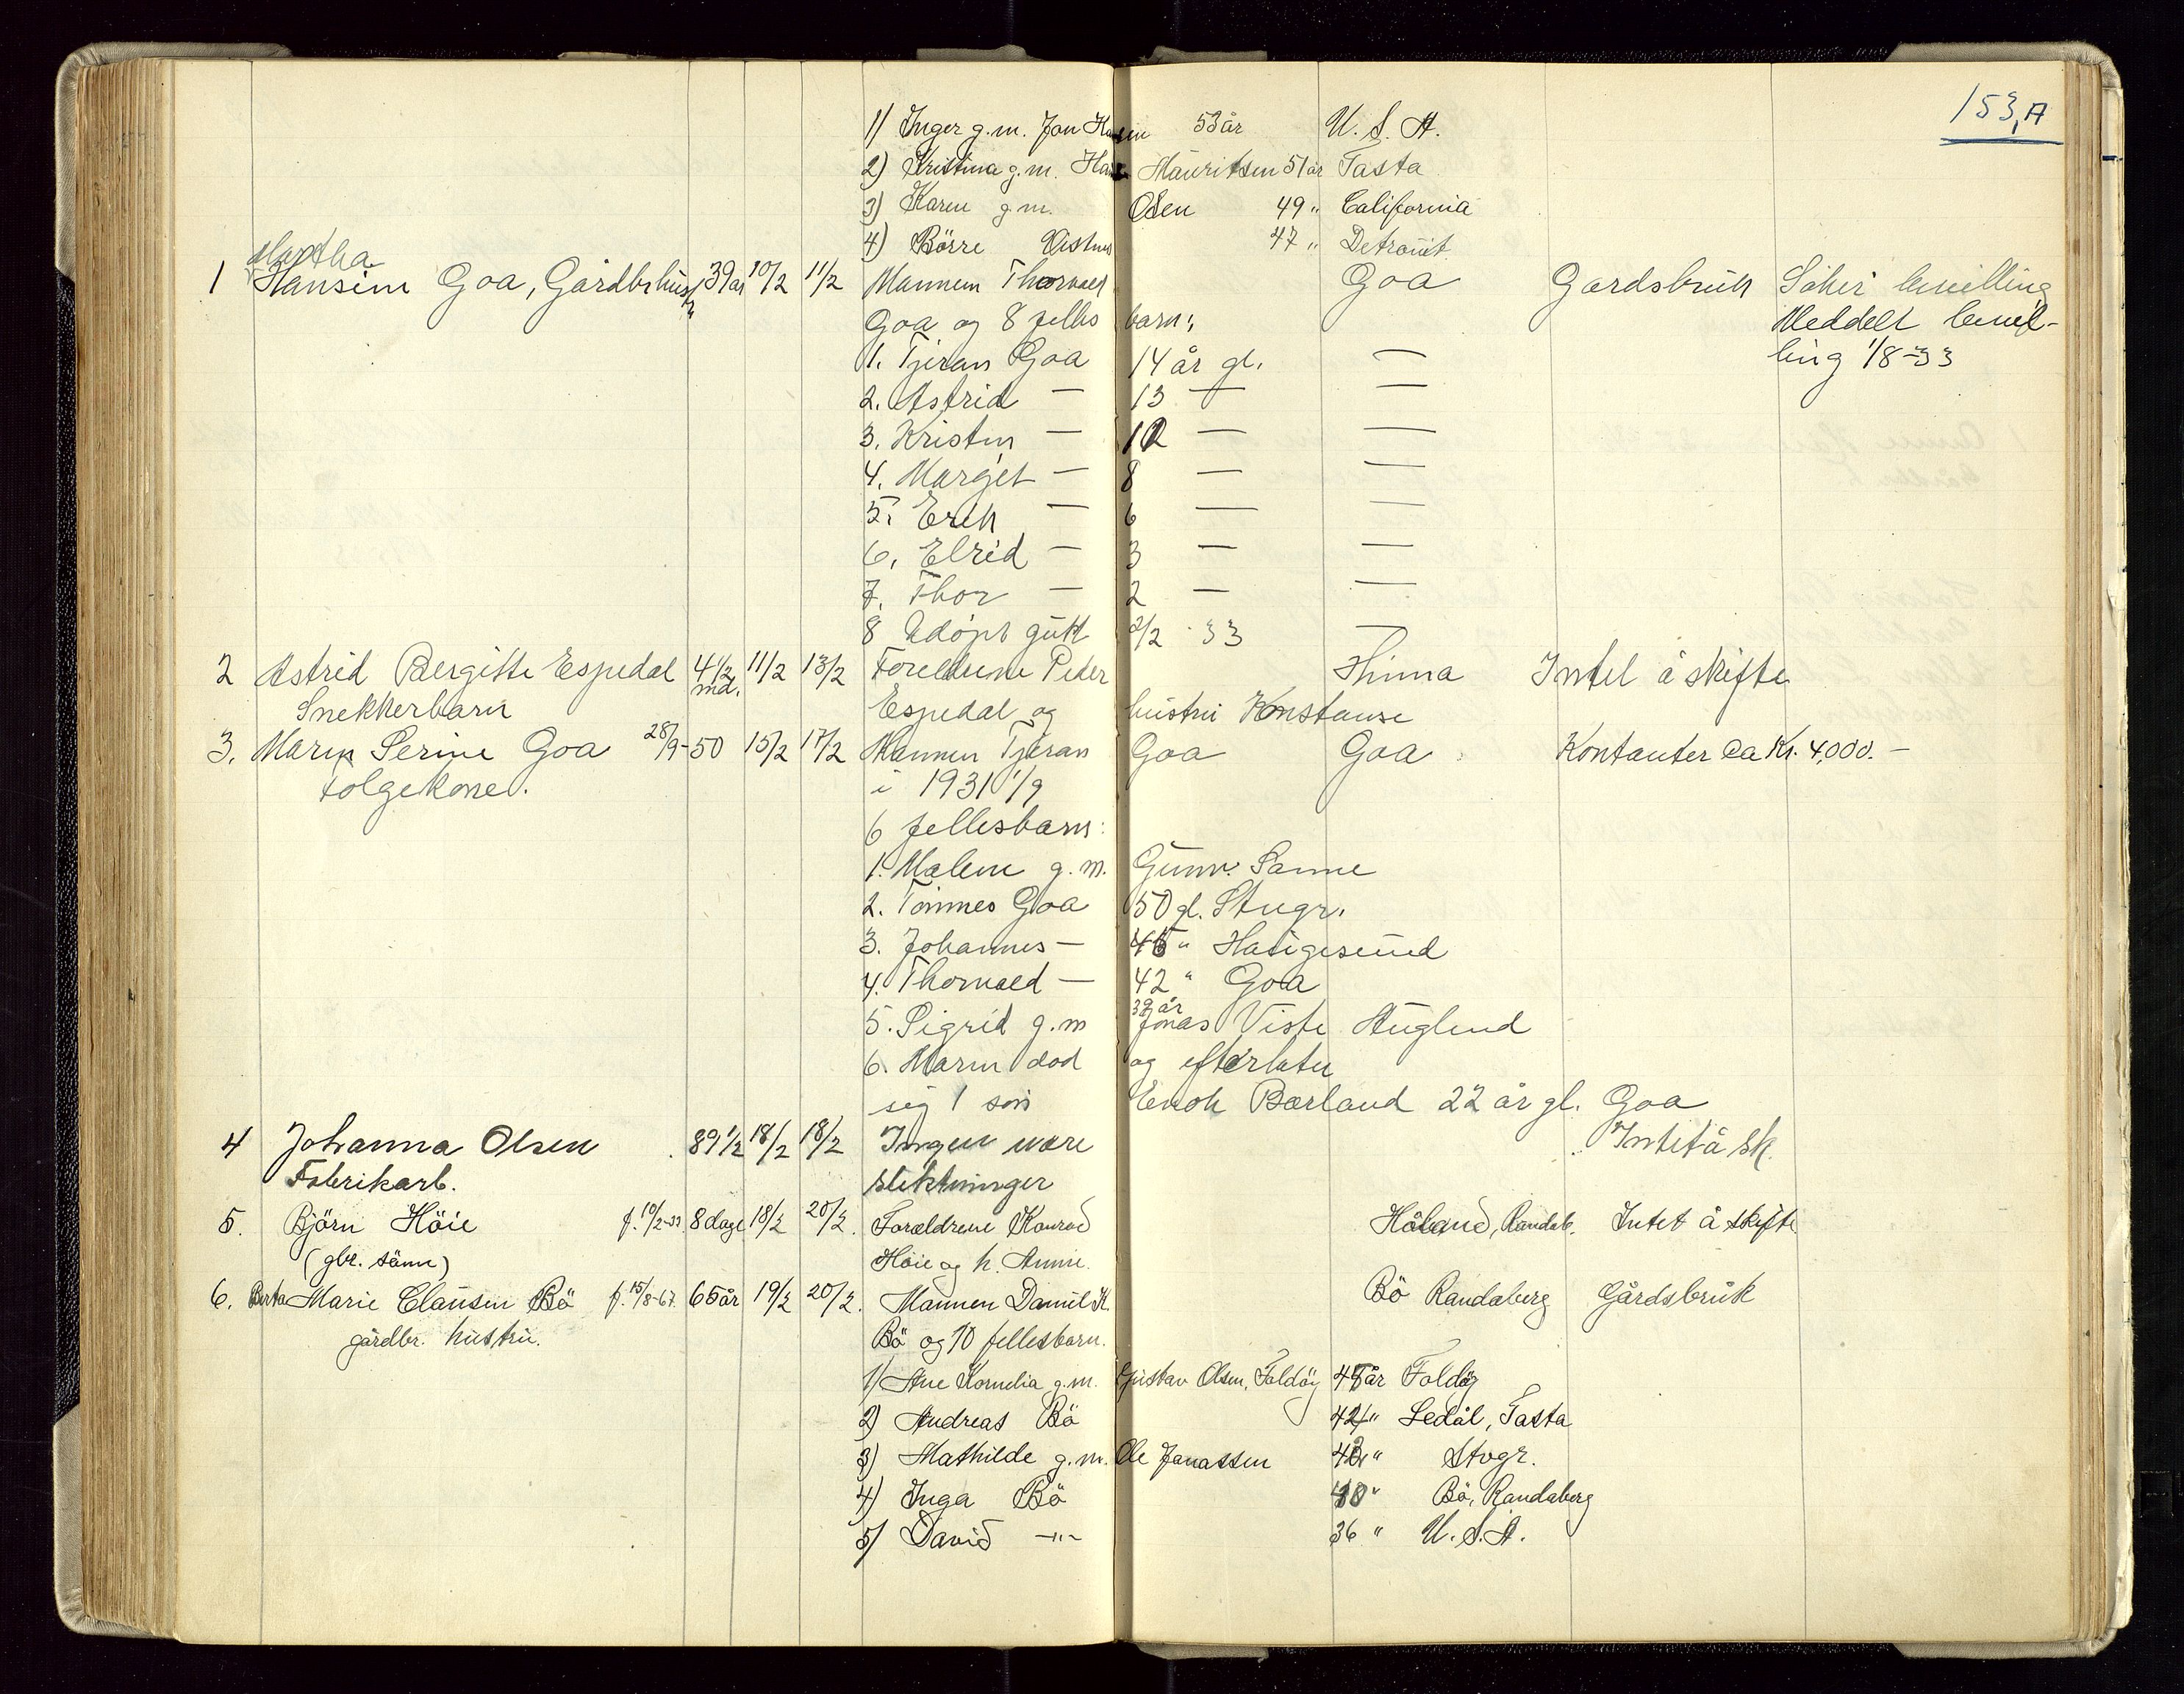 153,A
1) Inger g.m. Jon Hansen 53 år U. S. A.
2) Kristina g.m. Hans Mauritsen 51 år Tasta
3) Karen g.m. Olsen 49 " California
4) Børre Vistnes 47 " Detroit
Martha
1 Hansine Goa, Gårdbr.hustr 39 år 10/2 11/2 Mannen Thorvald Goa Gardsbruk Søker bevilling
Goa og 8 felles barn: Meddelt bevil-
1. Tjeran Goa 14 år gl. — ling 1/8-33
2. Astrid — 13 — —
3. Kristin — 12 — —
4. Marget — 8 — —
5. Erik — 6 — —
6. Elrid — 3 — —
7. Thor — 2 — —
8 Udøpt gutt 2/2 - 33 —
2 Astrid Bergitte Espedal 4 1/2 md. 11/2 13/2 Foreldrene Peder Hinna Intet å skifte
Snekkerbarn Espedal og hustru Konstanse
3. Marin Serine Goa 28/9-50 15/2 17/2 Mannen Tjeran Goa Goa Kontanter ca Kr. 4,000.-
Folgekone. i 1931 1/9
6 fellesbarn:
1. Malene g.m. Gunv. Sanne
2. Tønnes Goa 50 gl. Stvgr.
3. Johannes — 45 " Haugesund
4. Thorvald — 42 " Goa
39 år
5. Sigrid g.m Jonas Viste Auglend
6. Marin død og efterlater
sig 1 søn Enok Børland 22 år gl. Goa
4 Johanna Olsen 89 1/2 18/2 18/2 Ingen nære Intet å sk.
Fabrikarb. slektninger
5. Björn Höie f. 10/2-33 8 dage 18/2 20/2. Forældrene Konrad Håland, Randab. Intet å skifte
(gbr. sönn) Höie og h. Anne.
6. Berta Marie Clausen Bö f. 15/8-67. 65 år 19/2 20/2. Mannen Daniel K. Bö Randaberg Gårdsbruk
gårdbr. hustru. Bö og 10 fellesbarn.
1) Ane Kornelia g.m. Gustav Olsen, Foldöy 45 år Foldöy
2) Andreas Bö 42 " Ledål, Tasta
3) Mathilde g.m. Ole Jonassen " Stvgr.
4) Inga Bö " Bö, Randaberg
5) David —"— 36 " U. S. A.